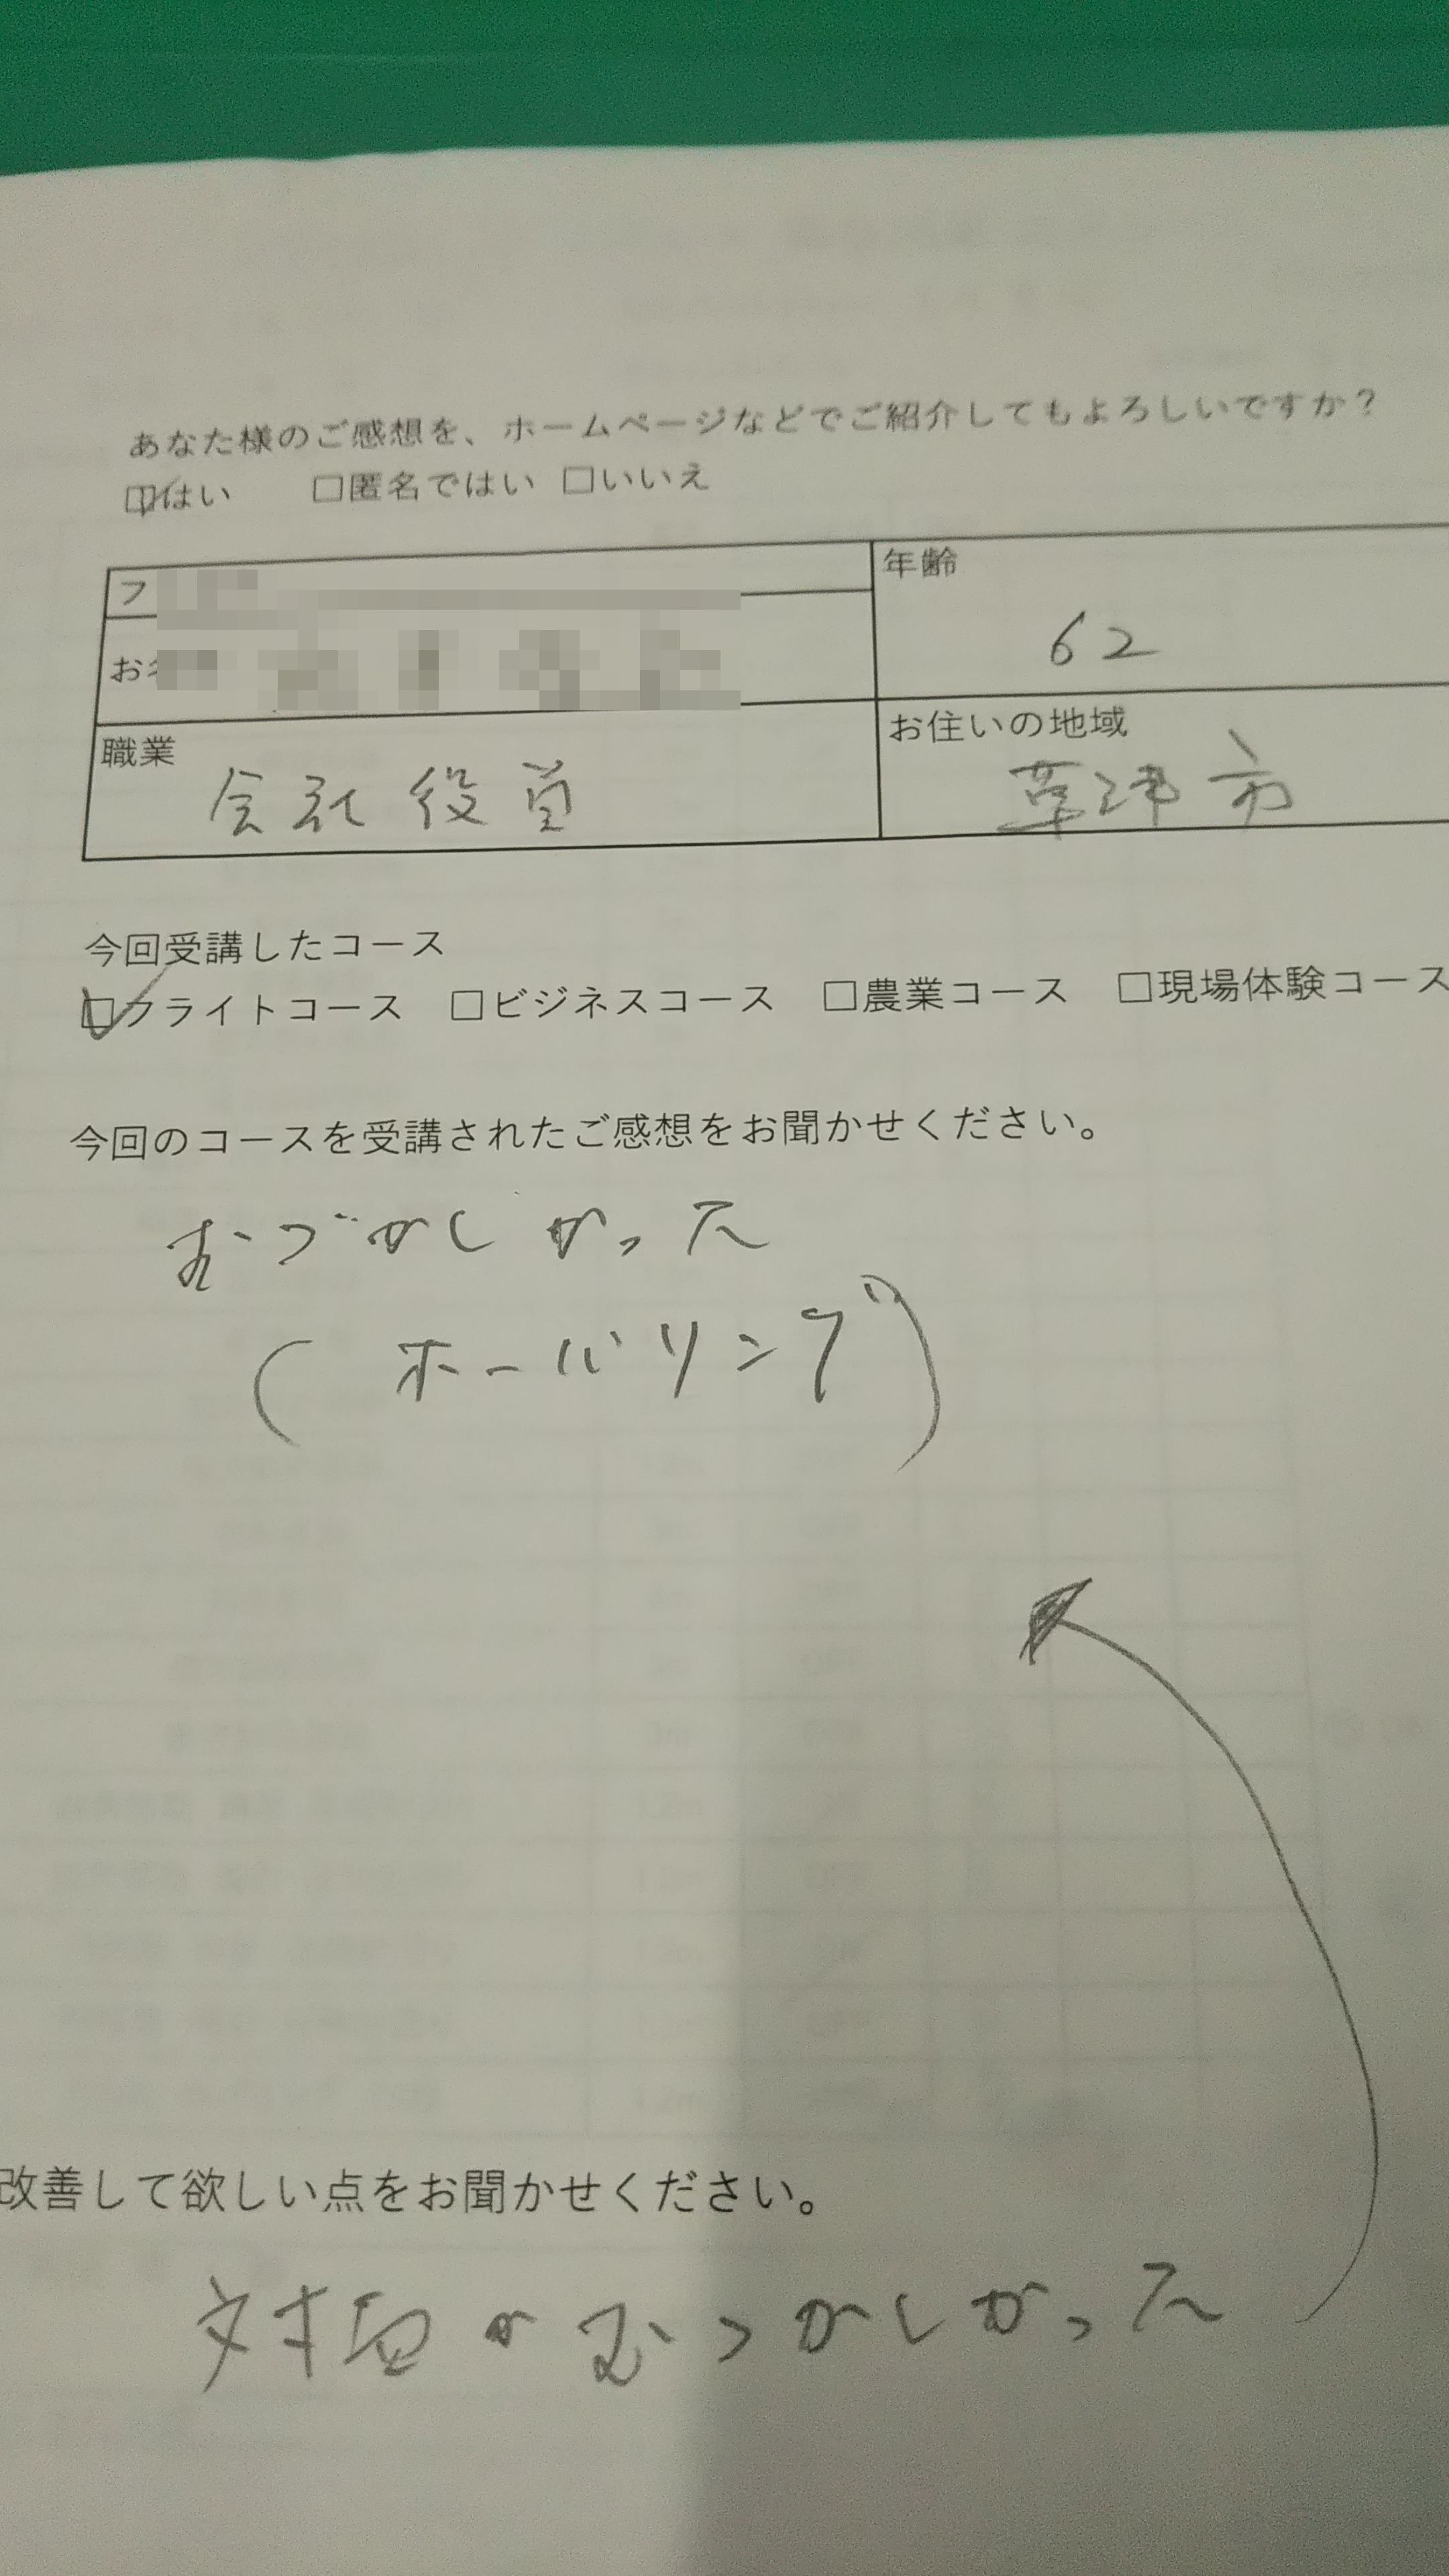 あなた様のご感想を、ホームページなどでご紹介してもよろしいですか？
☑はい □匿名ではい □いいえ
フ
お名
年齢
62
職業
会社役員
お住いの地域
草津市
今回受講したコース
☑フライトコース □ビジネスコース □農業コース □現場体験コース
今回のコースを受講されたご感想をお聞かせください。
むづかしかった
(ホーバリング)
改善して欲しい点をお聞かせください。
対面がむつかしかった